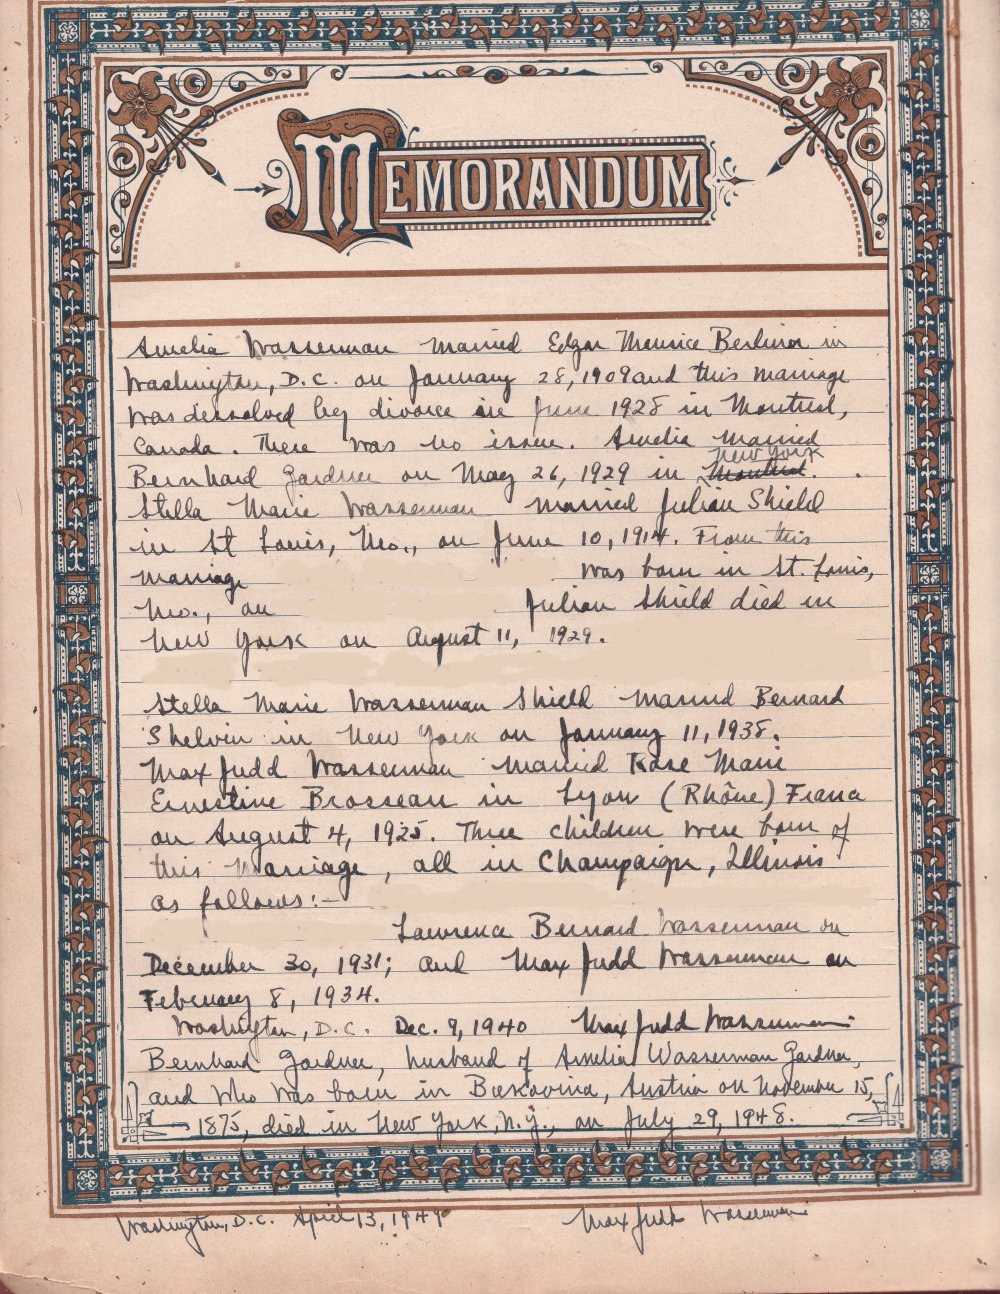 MEMORANDUM
Amelia Wasserman married Edgar Maurice Berliner in
Washington, D.C. on January 28, 1909 and this marriage
was dissolved by divorce in June 1928 in Montreal,
Canada. There was no issue. Amelia married
New York
Bernhard Gardner on May 26, 1929 in Montreal.
Stella Marie Wasserman married Julian Shield
in St Louis, Mo., on June 10, 1914. From this
marriage was born in St. Louis,
Mo., on Julian Shield died in
New York on August 11, 1929.
Stella Marie Wasserman Shield married Bernard
Shelvin in New York on January 11, 1938.
Max Judd Wasserman married Rose Marie
Ernestine Brosseau in Lyon (Rhône) France
on August 4, 1925. Three children were born of
this marriage, all in Champaign, Illinois
as follows:-
Lawrence Bernard Wasserman on
December 30, 1931; and Max Judd Wasserman on
February 8, 1934.
Washington, D.C. Dec. 9, 1940 Max Judd Wasserman
Bernhard Gardner, husband of Amelia Wasserman Gardner,
and who was born in Bukovina, Austria on November 15,
1875, died in New York, N.Y., on July 29, 1948.
Washington, D.C. April 13, 1949 Max Judd Wasserman